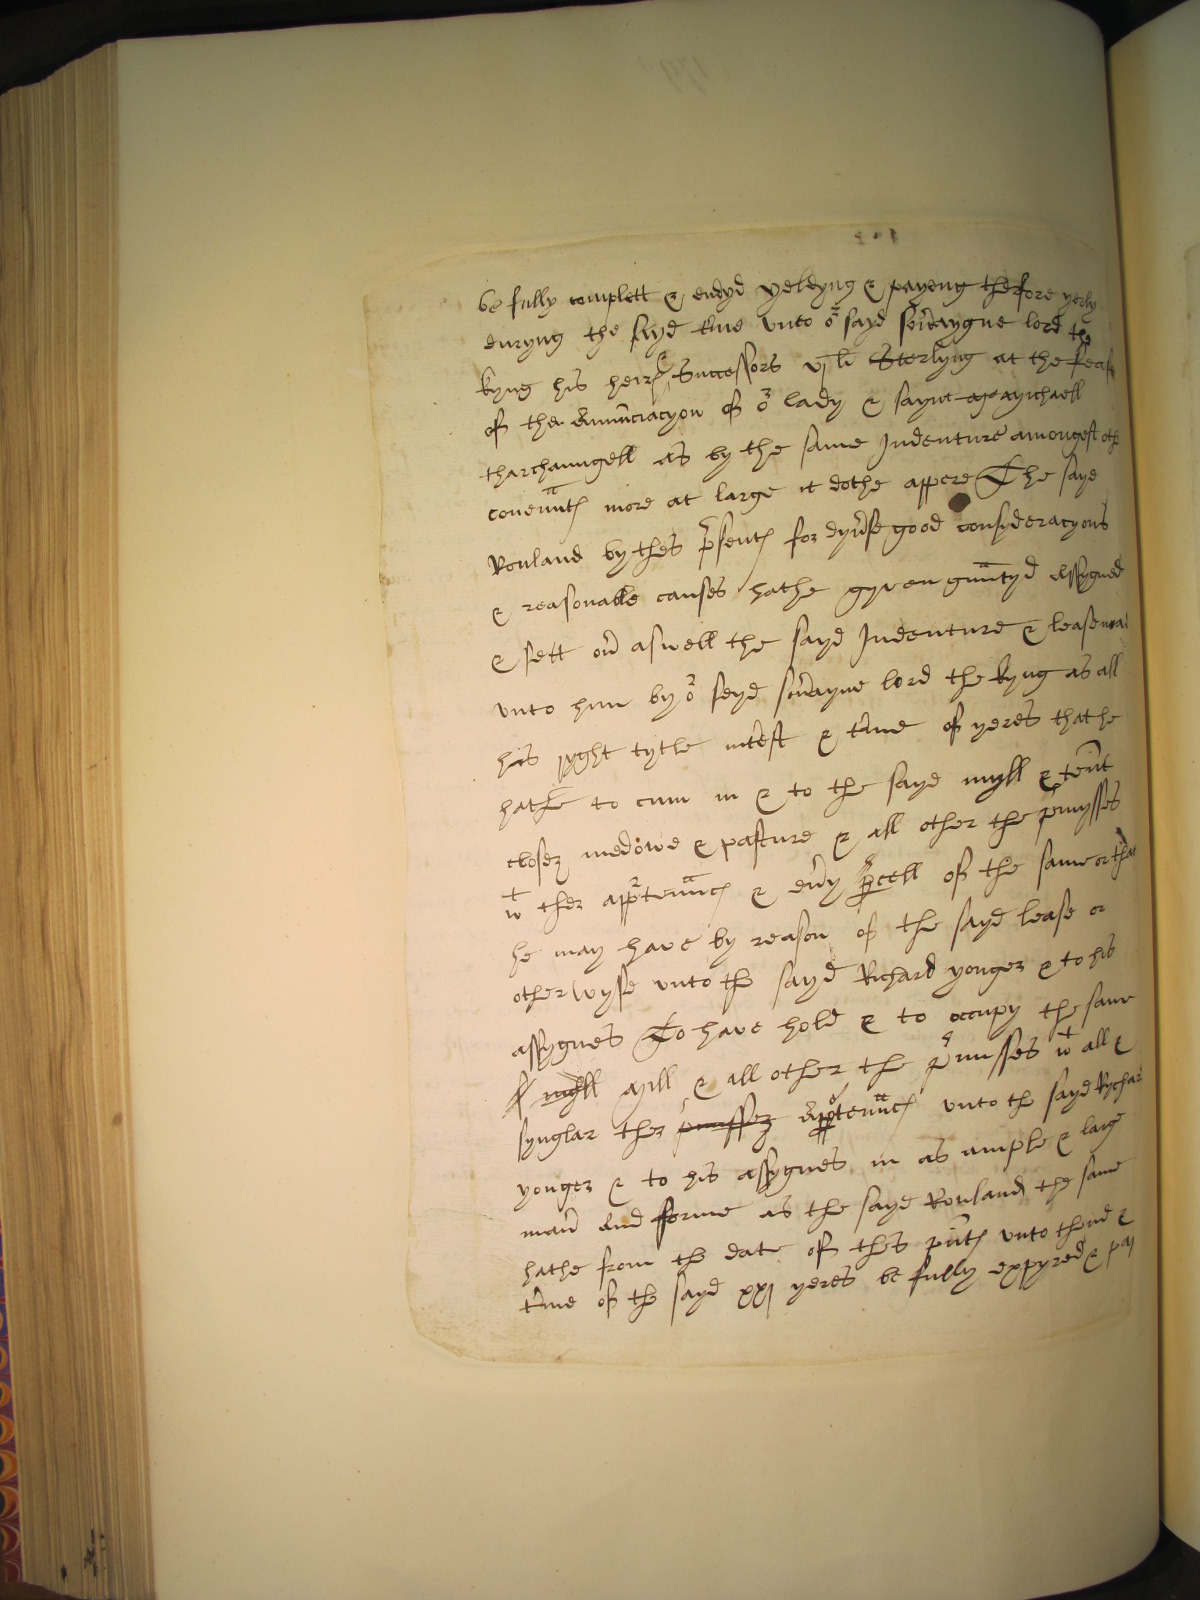 be fully complett & endyd yeldyng & payeng therfore yerly
duryng the sayd t'me unto or sayd sov'aygne lord the
kyng his heires & Successors vj li Sterlyng at the feast
of the Annunciacyon of or lady & saynt Mychaell
tharchaungell as by the same Indenture amongest oth
covenntes more at large it dothe appere The sayd
Rouland by thes p'sentes for dyv'se good consyderacyons
& reasonable causes hathe gyven gra'ntyd Assygned
& sett ov' aswell the sayd Indenture & lease mad
unto hym by or seyd sov'ayne lord the kyng as all
his ryght tytle int'est & t'me of yeres that he
hathe to cum in & to the sayd myll & ten't
closez medowe & pasture & all other the p'mysses
wt ther app'tenn'ces & ev'y p'cell of the same or that
he may have by reason of the sayd lease or
otherwyse unto the sayd Richard yonger & to his
assygnes To have hold & to occupy the same
myll Mill & all other the p'misses wt all &
synglar ther p'missez App'tenn'ces unto the sayd Rychard
yonger & to his assygnes in as ample & large
man' And forme as the sayd Rouland the same
hathe from the date of thes p'ntes unto thend &
t'me of the sayd xxj yeres be fully expyred & pas